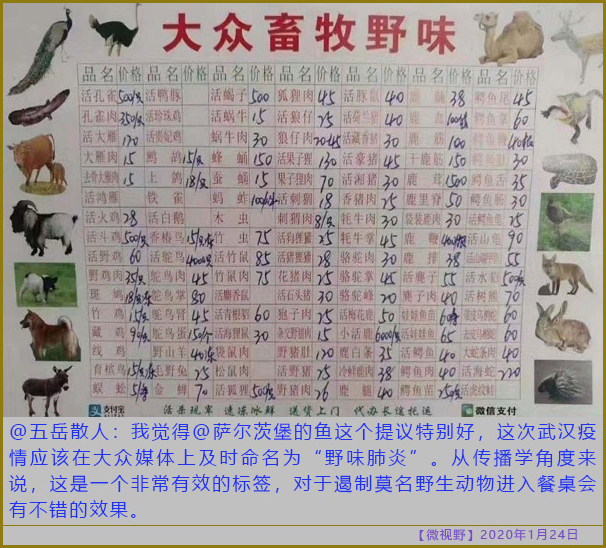 大众畜牧野味
品名 价格 品名 价格 品名 价格 品名 价格 品名 价格 品名 价格 品名 价格
活孔雀 500/只 活蝎子 500 狐狸肉 45 活豚鼠 40 38 鳄鱼尾 45
孔雀肉 350/只 活珍珠鸡 活蜗牛 15 活狼仔 25 活荷兰猪 40 鹿血 60
活大雁 120 活贵妃鸡 蜗牛肉 30 狼仔肉 20-45 活藏香猪 30 鹿筋 100
大雁肉 15 鹧鸪 15/只 蜂蛹 150 活果子狸 130 活豪猪 45 干鹿筋 150 30
去骨大雁肉 15 土鸽 18/只 蚕蛹 15 果子狸肉 70 活湘猪 30 鹿茸 1500 鳄鱼舌 35
活鸿雁 铁雀 蚂蚱 活刺猬 18 香猪肉 25 鹿里脊 50 30
活火鸡 28 活白鹅 木虫 刺猬肉 8/只 牦牛肉 30 30 25
活斗鸡 500/只 香椿鸟 15/只 竹虫 75 25 牦牛掌 45 鹿鞭 活山龟 90
活野鸡 60 活鸵鸟 4000/只 活竹鼠 85 28 骆驼肉 30 鹿排 38 55
野鸡肉 35/只 鸵鸟肉 45 竹鼠肉 75 花猪肉 25 骆驼掌 45 活鹿子 55 活水貂 500/只
斑鸠 鸵鸟掌 80 活麝香鼠 活石头猪 30 骆驼峰 20 鹿子肉 40 活树熊 70
竹鸡 15/只 鸵鸟肾 45 活青根貂 60 狍子肉 25 活梅花鹿 50 娃娃鱼
藏鸡 90/只 鸵鸟蛋 150/个 活海狸鼠 30 15 小活鹿 6000/只 活娃娃鱼 65 60
线鸡 野山羊 袋鼠肉 野猪肚 120 鹿白条 35 活鳄鱼 40 大蛇条肉 40
15/只 25 松鼠肉 活野猪 25 冷鲜鹿肉 38 鳄鱼肉 40 活海蛇 220
蜈蚣 金蝉 70 活狐狸 500/只 野猪肉 26 鹿腿 40 鳄鱼苗 活虎纹蛙
支付宝 活杀现宰 速冻冰鲜 送货上门 代办长途托运 微信支付
@五岳散人：我觉得@萨尔茨堡的鱼这个提议特别好，这次武汉疫
情应该在大众媒体上及时命名为“野味肺炎”。从传播学角度来
说，这是一个非常有效的标签，对于遏制莫名野生动物进入餐桌会
有不错的效果。
【微视野】2020年1月24日